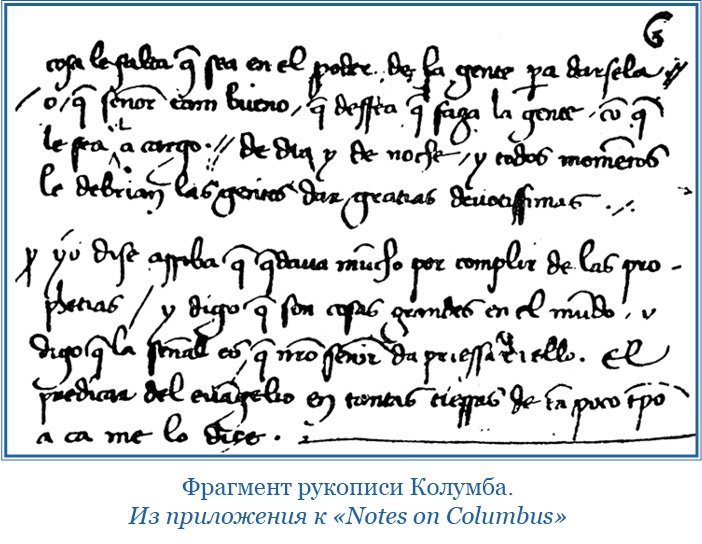 6
cosa le falta q̃ sea en el poder de la gente pa darsela //
/ o / q̃ señor tam bueno, q̃ dessea q̃ faga la gente, cõ q̃
le sea el a cargo. // de dia y de noche, y todos momẽtos
le debrian las gentes dar gratias devotissimas.
yo dise arriba q̃ q̃dava mũcho por complir de las pro-
phetias / y digo q̃ son cosas grandes en el mũdo, y
digo q̃ la señal es q̃ nr̃o señor da priessa a ello. El
predicar del evãgelio en tantas tierras de tã poco tp̃o
a ca me lo dize.
Фрагмент рукописи Колумба.
Из приложения к «Notes on Columbus»